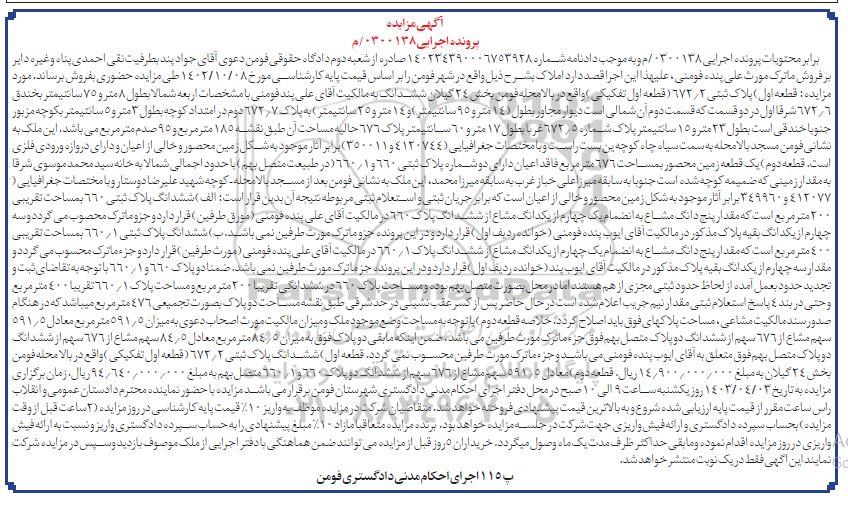 آگهی مزایده
پرونده اجرایی ۰۳۰۰۱۳۸/م
برابر محتویات پرونده اجرایی ۰۳۰۰۱۳۸/م و به موجب دادنامه شماره ۱۴۰۲۳۴۳۹۰۰۰۶۷۵۳۹۲۸ صادره از شعبه دوم دادگاه حقوقی فومن دعوی آقای جواد پند بطرفیت نقی احمدی پناه و غیره دایر
بر فروش ماترک مورث علی پنده فومنی، علیهذا این اجرا قصد دارد املاک بشرح ذیل واقع در شهر فومن را بر اساس قیمت پایه کارشناسی مورخ ۱۴۰۲/۱۰/۰۸ طی مزایده حضوری بفروش برساند. مورد
مزایده: قطعه اول) پلاک ثبتی ۶۷۲٫۲ (قطعه اول تفکیکی) واقع در بالامحله فومن بخش ۲۴ گیلان ششدانگ به مالکیت آقای علی پنده فومنی با مشخصات اربعه شمالا بطول ۸ متر و ۷۵ سانتیمتر بخندق
۶۷۲٫۶ شرقا اول در دو قسمت که قسمت دوم آن شمالی است دیوار مجاور بطول (۱۴ متر و ۹۵ سانتیمتر) و (۱۴ متر و ۲۵ سانتیمتر) به پلاک ۶۷۲٫۷ دوم در امتداد کوچه بطول ۳ متر و ۵ سانتیمتر بکوچه مزبور
جنوبا خندقی است بطول ۲۳ متر و ۱۵ سانتیمتر پلاک شماره ۶۷۲٫۵ غربا بطول ۱۷ متر و ۶۰ سانتیمتر پلاک ۶۷۶ حالیه مساحت آن طبق نقشه ۱۸۵ مترمربع و ۹۵ صدم مترمربع می باشد. این ملک به
نشانی فومن مسجد بالامحله به سمت سیاه چاه کوچه بن بست راست و با مختصات جغرافیایی (۴۱۲۰۷۴۴ و ۳۵۰۰۱۱) برابر آثار موجود به شکل زمین محصور و خالی از اعیان و دارای دروازه ورودی فلزی
است. قطعه دوم) یک قطعه زمین محصور بمساحت ۶۷۶ مترمربع فاقد اعیان دارای دو شماره پلاک ثبتی ۶۶۰ و ۶۶۰٫۱ (در طبیعت متصل بهم) با حدود اجمالی شمالا به خانه سید محمد موسوی شرقا
به مقدار زمینی که ضمیمه کوچه شده است جنوبا به سابقه میرزا علی خباز غرب به سابقه میرزا محمد، این ملک به نشانی فومن بعد از مسجد بالامحله-کوچه شهید علیرضا دوستار و با مختصات جغرافیایی (
۴۱۲۰۷۷ و ۳۴۹۹۶۰) برابر آثار موجود به شکل زمین محصور و خالی از اعیان است که برابر جریان ثبتی و استعلام ثبتی مربوطه نتیجه آن بدین قرار است: الف) ششدانگ پلاک ثبتی ۶۶۰ بمساحت تقریبی
۲۰۰ متر مربع است که مقدار پنج دانگ مشاع به انضمام یک چهارم از یکدانگ مشاع از ششدانگ پلاک ۶۶۰ در مالکیت آقای علی پنده فومنی (مورث طرفین) قرار دارد و جزو ماترک محصوب می گردد و سه
چهارم از یکدانگ بقیه پلاک مذکور در مالکیت آقای ایوب پنده فومنی (خوانده ردیف اول) قرار دارد و در این پرونده جزو ماترک مورث طرفین نمی باشد. ب) ششدانگ پلاک ثبتی ۶۶۰٫۱ بمساحت تقریبی
۴۰۰ مترمربع است که مقدار پنج دانگ مشاع به انضمام یک چهارم از یکدانگ مشاع از ششدانگ پلاک ۶۶۰٫۱ در مالکیت آقای علی پنده فومنی (مورث طرفین) قرار دارد و جزء ماترک محسوب می گردد و
مقدار سه چهارم از یکدانگ بقیه پلاک مذکور در مالکیت آقای ایوب پنده (خوانده ردیف اول) قرار دارد و در این پرونده جزء ماترک مورث طرفین نمی باشد. ضمنا دو پلاک ۶۶۰ و ۶۶۰٫۱ با توجه به تقاضای ثبت و
تجدید حدود بعمل آمده از لحاظ حدود ثبتی مجزی از هم هستند اما در محل بصورت متصل بهم بوده و مساحت پلاک ۶۶۰ در ششدانگی تقریبا ۲۰۰ متر مربع و مساحت پلاک ۶۶۰٫۱ تقریبا ۴۰۰ متر مربع
و حتی در بند ۴ پاسخ استعلام ثبتی مقدار نیم جریب اعلام شده است در حال حاضر پس از کسر عقب نشینی در حد شرقی طبق نقشه مساحت دو پلاک بصورت تجمیعی ۴۷۶ متر مربع میباشد که در هنگام
صدور سند مالکیت مشاعی، مساحت پلاکهای فوق باید اصلاح گردد. خلاصه قطعه دوم) با توجه به مساحت وضع موجود ملک و میزان مالکیت مورث اصحاب دعوی به میزان ۵۹۱٫۵ متر مربع معادل ۵۹۱٫۵
سهم مشاع از ۶۷۶ سهم از ششدانگ دو پلاک متصل بهم فوق جزء ماترک مورث طرفین می باشد. ضمن اینکه مابقی دو پلاک فوق به میزان ۸۴٫۵ متر مربع معادل ۸۴٫۵ سهم مشاع از ۶۷۶ سهم از ششدانگ
دو پلاک متصل بهم فوق متعلق به آقای ایوب پنده فومنی می باشد و جزء ماترک مورث طرفین محسوب نمی گردد. قطعه اول) ششدانگ پلاک ثبتی ۶۷۲٫۲ (قطعه اول تفکیکی) واقع در بالامحله فومن
بخش ۲۴ گیلان به مبلغ ۱۴٫۹۰۰٫۰۰۰٫۰۰۰ ریال. قطعه دوم) معادل ۵۹۱٫۵ سهم مشاع از ۶۷۶ سهم از ششدانگ دو پلاک ۶۶۰ و ۶۶۰٫۱ متصل بهم به مبلغ ۹۴٫۶۴۰٫۰۰۰٫۰۰۰ ریال. زمان برگزاری
مزایده به تاریخ ۱۴۰۳/۰۴/۰۳ روز یکشنبه ساعت ۹ الی ۱۰ صبح در محل دفتر اجرای احکام مدنی دادگستری شهرستان فومن برقرار می باشد مزایده با حضور نماینده محترم دادستان عمومی و انقلاب
راس ساعت مقرر از قیمت پایه ارزیابی شده شروع و به بالاترین قیمت پیشنهادی فروخته خواهد شد. متقاضیان شرکت در مزایده موظف به واریز ۱۰٪ قیمت پایه کارشناسی در روز مزایده (۲ ساعت قبل از وقت
مزایده) بحساب سپرده دادگستری و ارائه فیش واریزی جهت شرکت در جلسه مزایده خواهد بود. برنده مزایده متعاقبا مازاد ۱۰٪ مبلغ پیشنهادی را به حساب سپرده دادگستری واریز و نسبت به ارائه فیش
واریزی در روز مزایده اقدام نموده و مابقی حداکثر ظرف مدت یک ماه وصول میگردد. خریداران ۵ روز قبل از مزایده می توانند ضمن هماهنگی با دفتر اجرایی از ملک موصوف بازدید و سپس در مزایده شرکت
نمایند این آگهی فقط در یک نوبت منتشر خواهد شد.
پ ۱۱۵ اجرای احکام مدنی دادگستری فومن